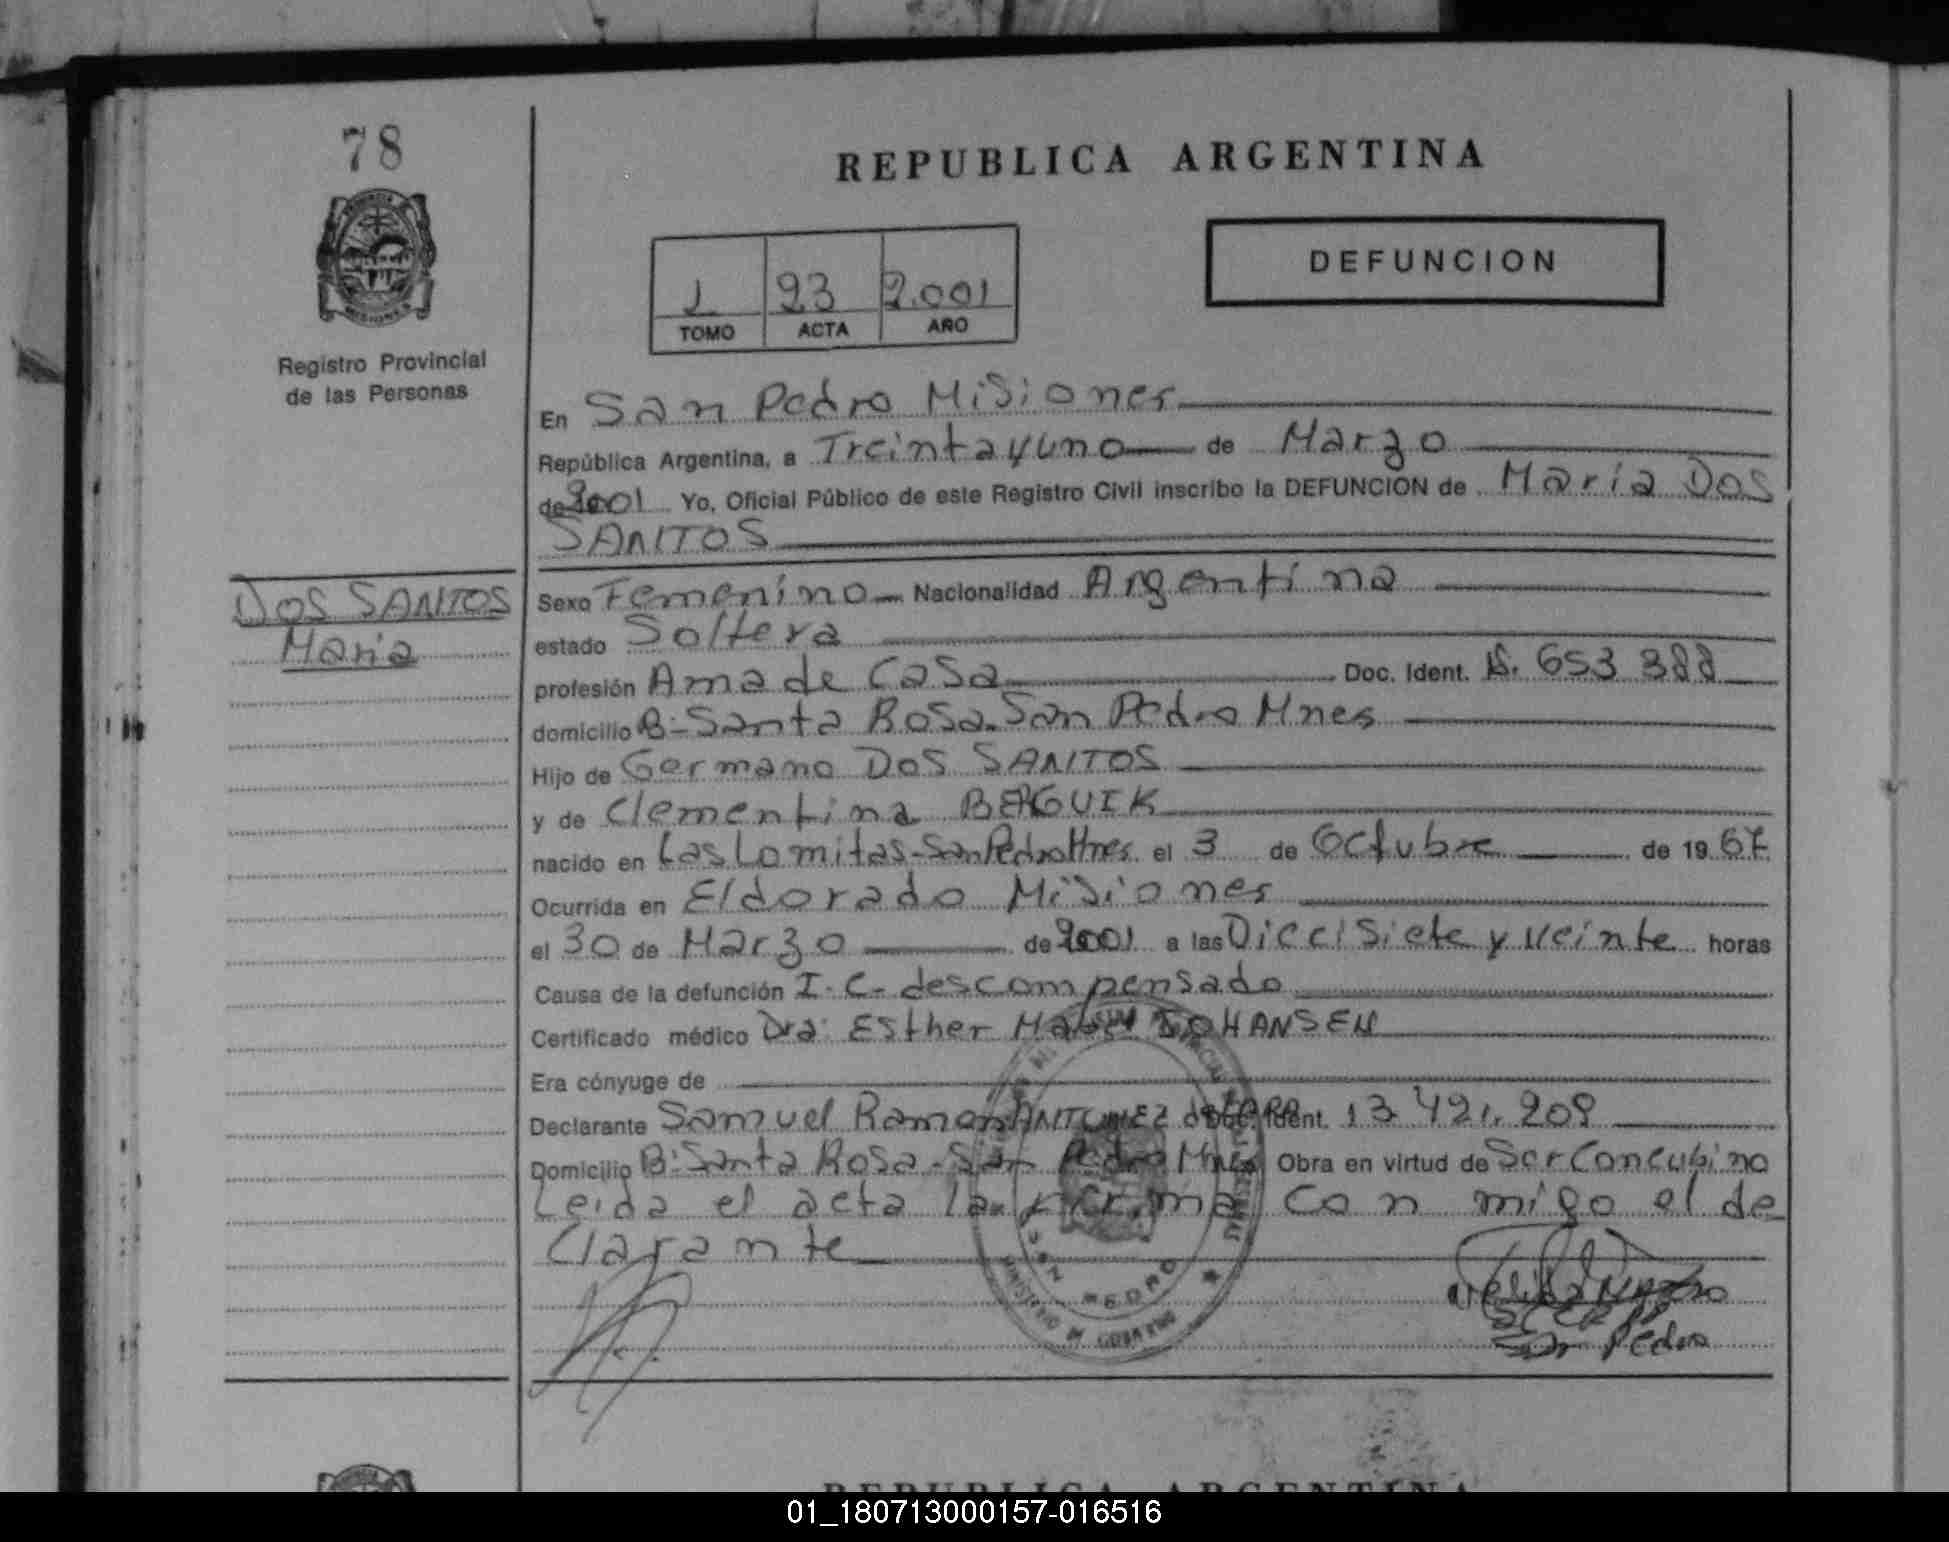 78
REPUBLICA ARGENTINA
Registro Provincial
de las Personas
1 23 2.001
TOMO ACTA AÑO
DEFUNCION
En San Pedro Misiones
República Argentina, a Treinta y uno de Marzo
de 2001 Yo, Oficial Público de este Registro Civil inscribo la DEFUNCION de Maria DOS
SANTOS
DOS SANTOS
Maria
Sexo Femenino Nacionalidad Argentina
estado Soltera
profesión Ama de Casa Doc. Ident. 653 388
domicilio B-Santa Rosa-San Pedro Mnes
Hijo de Germano DOS SANTOS
y de Clementina
nacido en Las Lomitas-San Pedro Mnes el 3 de Octubre de 19 67
Ocurrida en Eldorado Misiones
el 30 de Marzo de 2001 a las Diecisiete y veinte horas
Causa de la defunción I.C. descompensado
Certificado médico Dra: Esther Mabel JOHANSEN
Era cónyuge de
Declarante Samuel Ramon ANTUNEZ de LARA Doc. Ident. 13.421.209
Domicilio B: Santa Rosa-San Pedro Mnes Obra en virtud de Ser Concubino
Leida el acta la firma con migo el de
clarante
San Pedro
SAN PEDRO
MINISTERIO DE GOBIERNO
REPUBLICA ARGENTINA
01_180713000157-016516